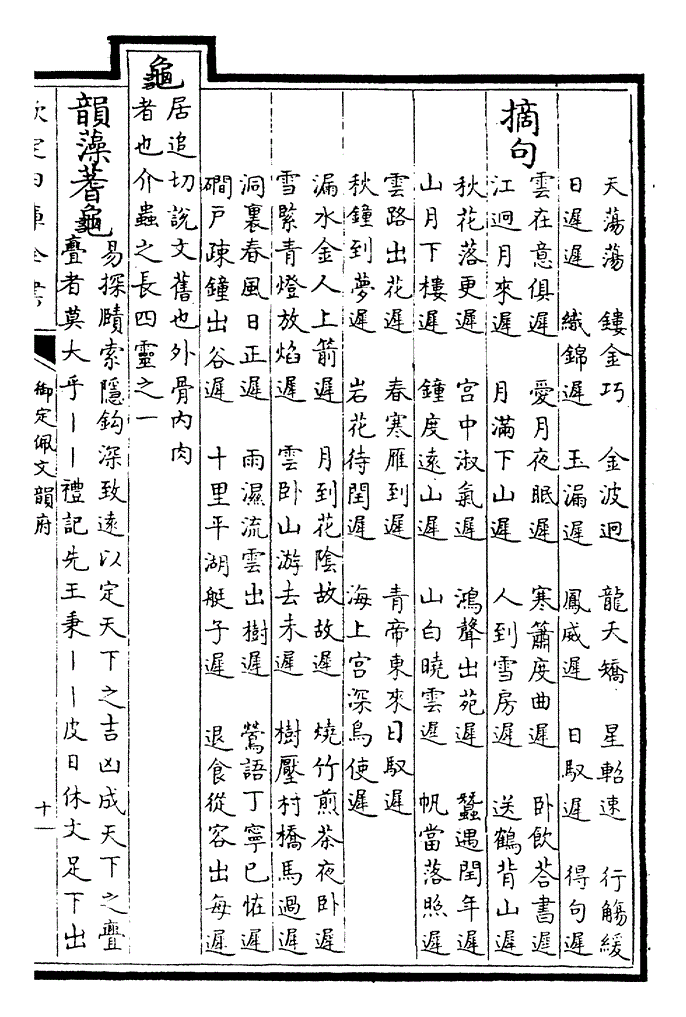 天蕩蕩　鏤金巧　金波迥　龍夭矯　星軺速　行觴緩
日遲遲　織錦遲　玉漏遲　鳳威遲　日馭遲　得句遲
摘句
雲在意俱遲　愛月夜眠遲　寒簫度曲遲　卧飲荅書遲
江迥月來遲　月滿下山遲　人到雪房遲　送鶴背山遲
秋花落更遲　宮中淑氣遲　鴻聲出苑遲　蠶遇閏年遲
山月下樓遲　鐘度遠山遲　山白曉雲遲　帆當落照遲
雲路出花遲　春寒雁到遲　青帝東來日馭遲
秋鐘到夢遲　岩花待閏遲　海上宮深鳥使遲
漏水金人上箭遲　月到花陰故故遲　燒竹煎茶夜卧遲
雪緊青燈放焰遲　雲卧山游去未遲　樹壓村橋馬過遲
洞裏春風日正遲　雨濕流雲出樹遲　鶯語丁寧已恠遲
磵戶疎鐘出谷遲　十里平湖艇子遲　退食從容出每遲
龜
居追切說文舊也外骨内肉
者也介蟲之長四靈之一
韻藻蓍龜
易探賾索隱鈎深致遠以定天下之吉凶成天下之亹
亹者莫大乎丨丨禮記先王秉丨丨皮日休文足下出
欽定四庫全書
御定佩文韻府
十一